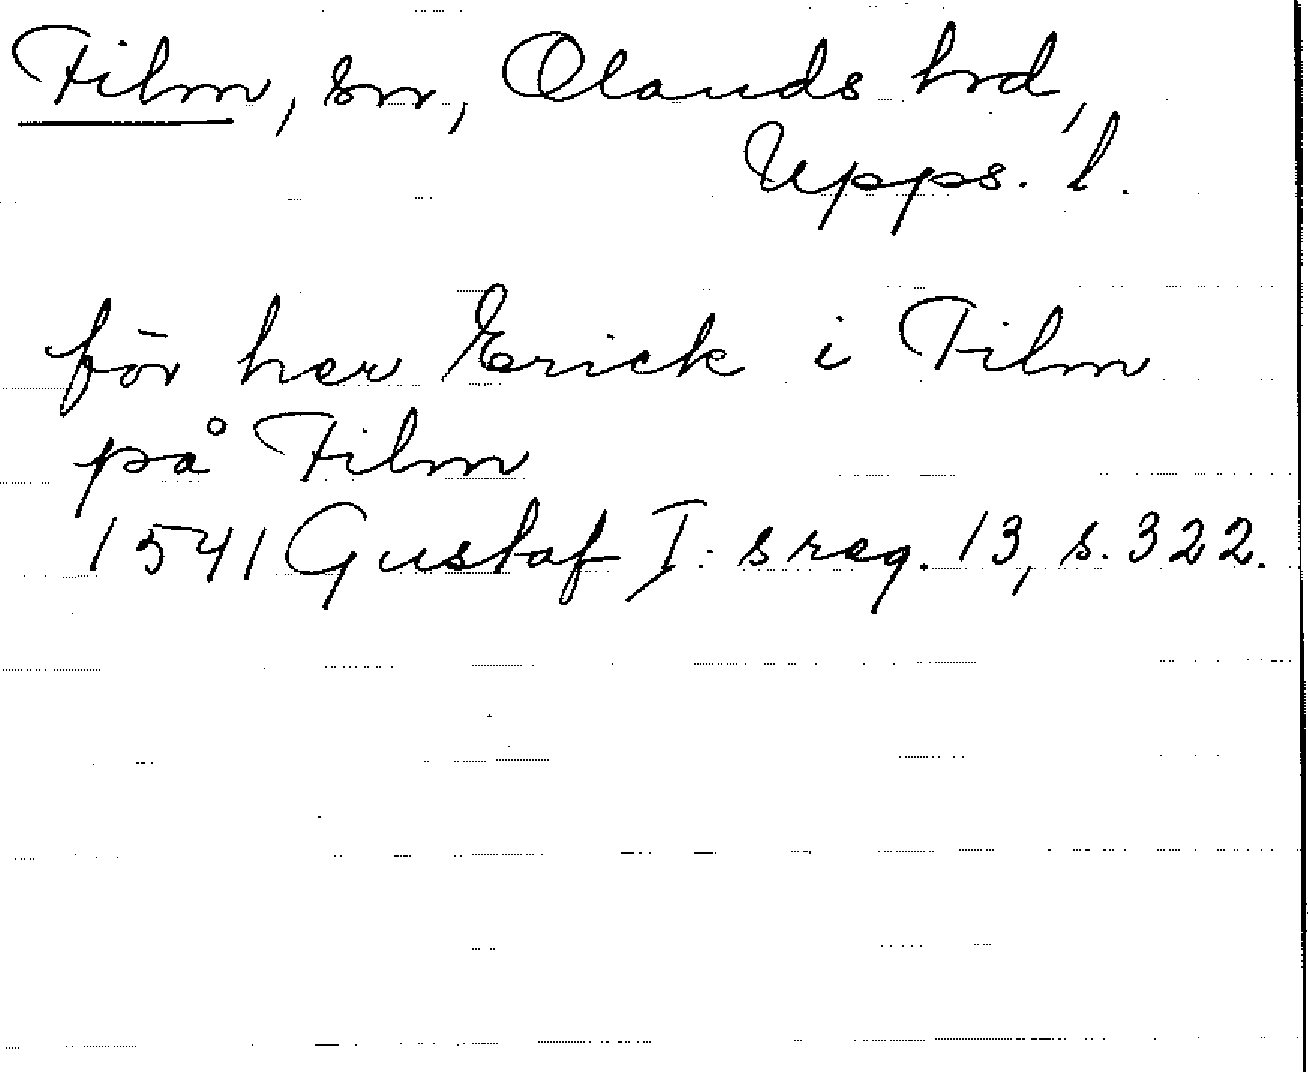 Film, sn, Olands hrd,
Upps. l.
för her Erick i Film
på Film
1541 Gustaf I:s reg. 13, s. 322.